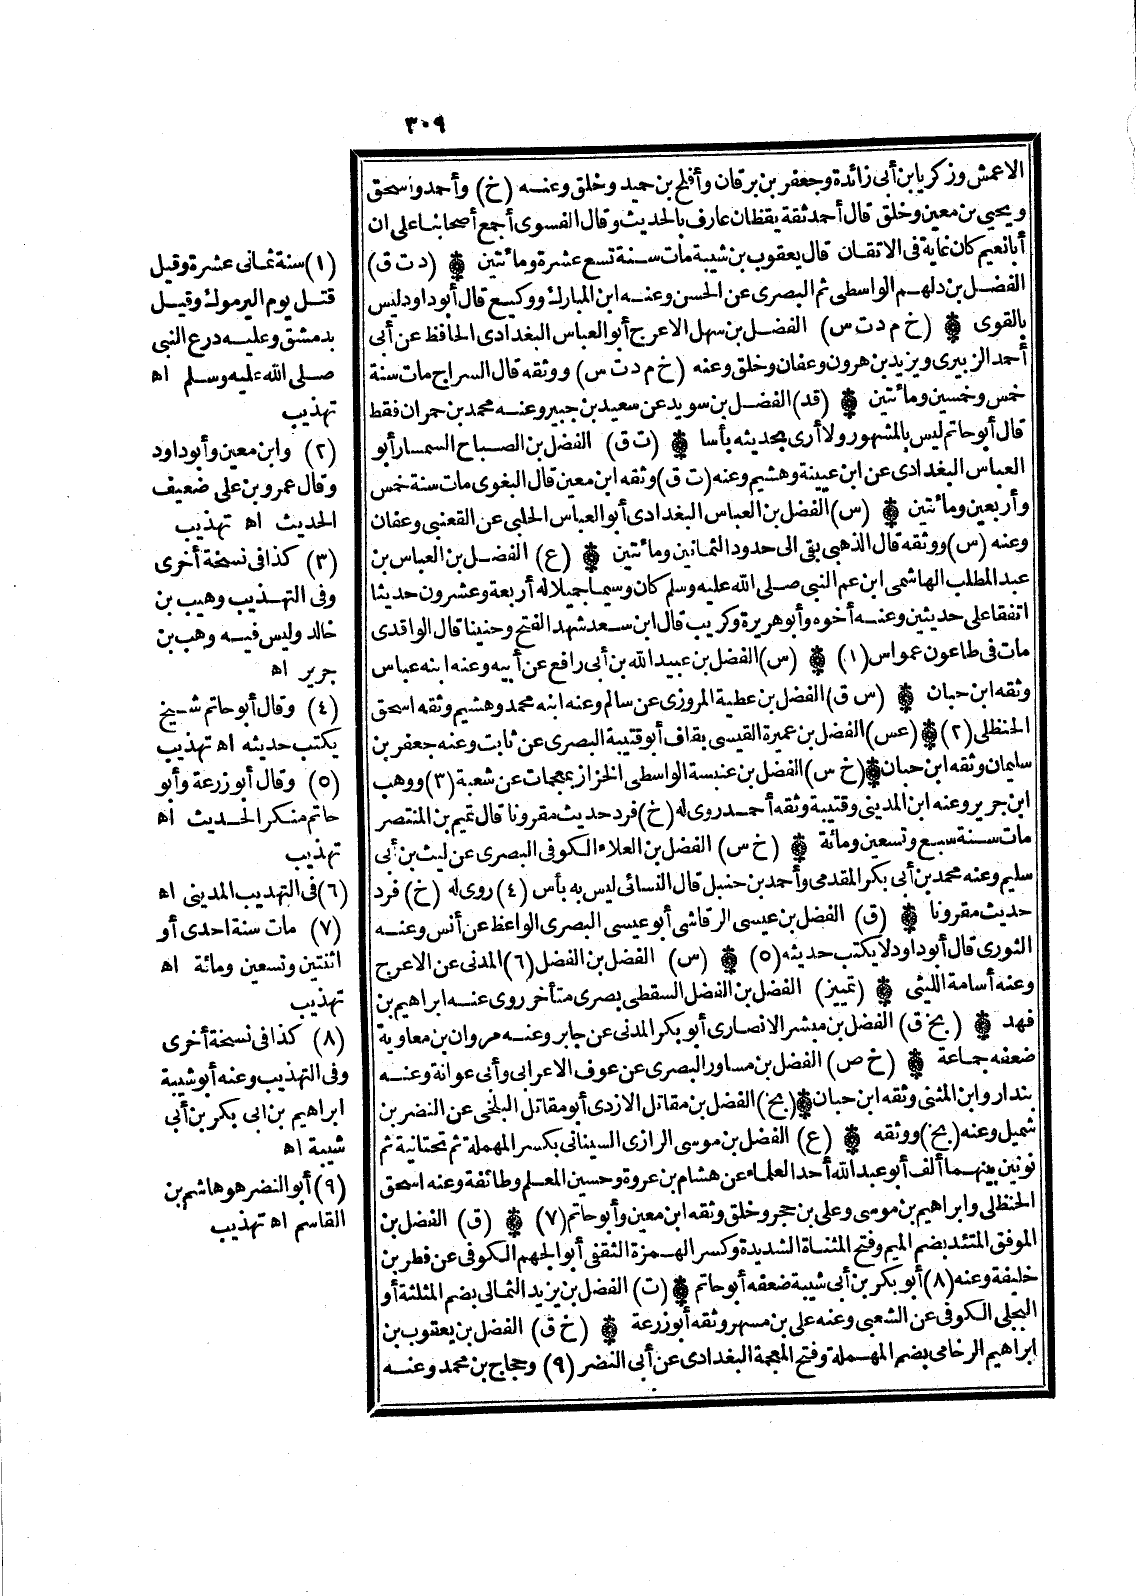 ٣٠٩
الاعمش وزكريا بن أبى زائدة وجعفر بن برقان وأفلح بن حميد وخلق وعنه (خ) وأحمد واسحق
ويحيى بن معين وخلق قال أحمد ثقة يقظان عارف بالحديث وقال الفسوى أجمع أصحابنا على ان
أبا نعيم كان غاية فى الاتقان قال يعقوب بن شيبة مات سنة تسع عشرة ومائتين ۞ (د ت ق)
الفضل بن دلهم الواسطى ثم البصرى عن الحسن وعنه ابن المبارك ووكيع قال أبو داود ليس
بالقوى ۞ (خ م د ت س) الفضل بن سهل الاعرج أبو العباس البغدادى الحافظ عن أبى
أحمد الزبيرى ويزيد بن هرون وعفان وخلق وعنه (خ م د ت س) ووثقه قال السراج مات سنة
خمس وخمسين ومائتين ۞ (قد) الفضل بن سويد عن سعيد بن جبير وعنه محمد بن حمران فقط
قال أبو حاتم ليس بالمشهور ولا أرى بحديثه بأسا ۞ (ت ق) الفضل بن الصباح السمسار أبو
العباس البغدادى عن ابن عيينة وهشيم وعنه (ت ق) وثقه ابن معين قال البغوى مات سنة خمس
وأربعين ومائتين ۞ (س) الفضل بن العباس البغدادى أبو العباس الحلبى عن القعنبى وعفان
وعنه (س) ووثقه قال الذهبى بقى الى حدود الثمانين ومائتين ۞ (ع) الفضل بن العباس بن
عبد المطلب الهاشمى ابن عم النبى صلى الله عليه وسلم كان وسيما جميلا له أربعة وعشرون حديثا
اتفقا على حديثين وعنه أخوه وأبو هريرة وكريب قال ابن سعد شهد الفتح وحنينا قال الواقدى
مات فى طاعون عمواس (١) ۞ (س) الفضل بن عبيد الله بن أبى رافع عن أبيه وعنه ابنه عباس
وثقه ابن حبان ۞ (س ق) الفضل بن عطية المروزى عن سالم وعنه ابنه محمد وهشيم وثقه اسحق
الحنظلى (٢) ۞ (عس) الفضل بن عميرة القيسى بقاف أبو قتيبة البصرى عن ثابت وعنه جعفر بن
سليمان وثقه ابن حبان ۞ (خ س) الفضل بن عنبسة الواسطى الخزاز بمعجمات عن شعبة (٣) ووهب
ابن جرير وعنه ابن المدينى وقتيبة وثقه أحمد روى له (خ) فرد حديث مقرونا قال تميم بن المنتصر
مات سنة سبع وتسعين ومائة ۞ (خ س) الفضل بن العلاء الكوفى البصرى عن ليث بن أبى
سليم وعنه محمد بن أبى بكر المقدمى وأحمد بن حنبل قال النسائى ليس به بأس (٤) روى له (خ) فرد
حديث مقرونا ۞ (ق) الفضل بن عيسى الرقاشى أبو عيسى البصرى الواعظ عن أنس وعنه
الثورى قال أبو داود لا يكتب حديثه (٥) ۞ (س) الفضل بن الفضل (٦) المدنى عن الاعرج
وعنه أسامة الليثى ۞ (تمييز) الفضل بن الفضل السقطى بصرى متأخر روى عنه ابراهيم بن
فهد ۞ (بخ ق) الفضل بن مبشر الانصارى أبو بكر المدنى عن جابر وعنه مروان بن معاوية
ضعفه جماعة ۞ (خ ص) الفضل بن مساور البصرى عن عوف الاعرابى وأبى عوانة وعنه
بندار وابن المثنى وثقه ابن حبان ۞ (بخ) الفضل بن مقاتل الازدى أبو مقاتل البلخى عن النضر بن
شميل وعنه (بخ) ووثقه ۞ (ع) الفضل بن موسى الرازى السينانى بكسر المهملة ثم تحتانية ثم
نونين بينهما ألف أبو عبد الله أحد العلماء عن هشام بن عروة وحسين المعلم وطائفة وعنه اسحق
الحنظلى وابراهيم بن موسى وعلى بن حجر وخلق وثقه ابن معين وأبو حاتم (٧) ۞ (ق) الفضل بن
الموفق المتئد بضم الميم وفتح المثناة الشديدة وكسر الهمزة الثقفى أبو الجهم الكوفى عن فطر بن
خليفة وعنه (٨) أبو بكر بن أبى شيبة ضعفه أبو حاتم ۞ (ت) الفضل بن يزيد الثمالى بضم المثلثة أو
البجلى الكوفى عن الشعبى وعنه على بن مسهر وثقه أبو زرعة ۞ (خ ق) الفضل بن يعقوب بن
ابراهيم الرخامى بضم المهملة وفتح المعجمة البغدادى عن أبى النضر (٩) وحجاج بن محمد وعنه
(١) سنة ثمانى عشرة وقيل
قتل يوم اليرموك وقيل
بدمشق وعليه درع النبى
صلى الله عليه وسلم اه
تهذيب
(٢) وابن معين وأبو داود
وقال عمرو بن على ضعيف
الحديث اه تهذيب
(٣) كذا فى نسخة أخرى
وفى التهذيب وهيب بن
خالد وليس فيه وهب بن
جرير اه
(٤) وقال أبو حاتم شيخ
يكتب حديثه اه تهذيب
(٥) وقال أبو زرعة وأبو
حاتم منكر الحديث اه
تهذيب
(٦) فى التهذيب المدينى اه
(٧) مات سنة احدى أو
اثنتين وتسعين ومائة اه
تهذيب
(٨) كذا فى نسخة أخرى
وفى التهذيب وعنه أبو شيبة
ابراهيم بن ابى بكر بن أبى
شيبة اه
(٩) أبو النضر هو هاشم بن
القاسم اه تهذيب